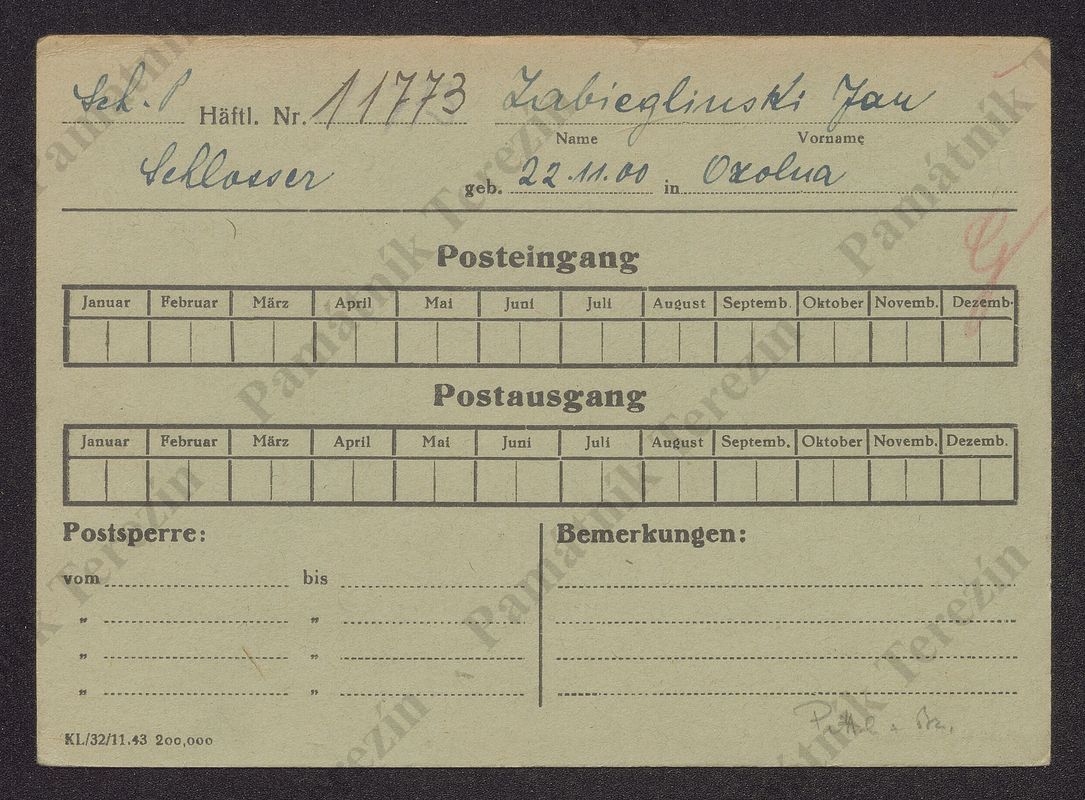 Sch. P Häftl. Nr. 11773 Zabieglinski Jan
Name Vorname
Schlosser geb. 22.11.00 in Oxolna
Posteingang
Januar Februar März April Mai Juni Juli August Septemb. Oktober Novemb. Dezemb.
Postausgang
Januar Februar März April Mai Juni Juli August Septemb. Oktober Novemb. Dezemb.
Postsperre: Bemerkungen:
vom bis
" "
" "
" "
KL/32/11.43 200,000
Památník Terezín